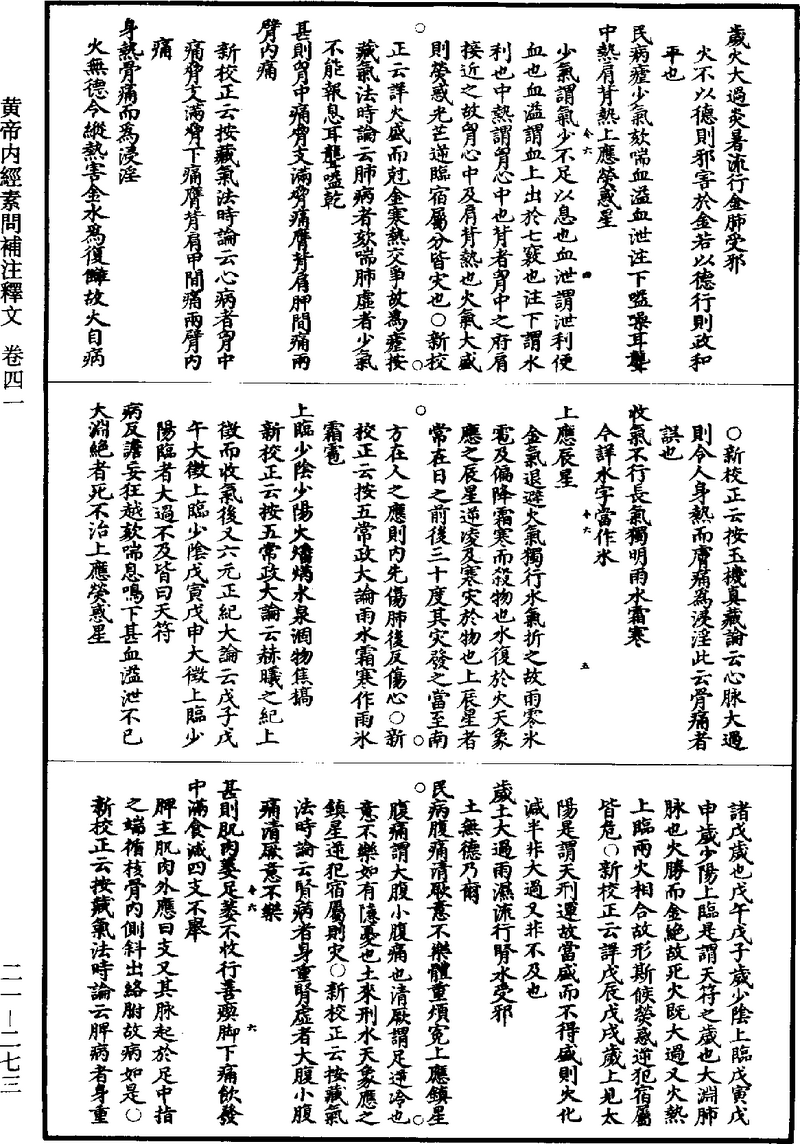 歲火大過炎暑流行金肺受邪
火不以德則邪害於金若以德行則政和
平也
民病瘧少氣欬喘血溢血泄注下嗌燥耳聾
中熱肩背熱上應熒惑星
少氣謂氣少不足以息也血泄謂泄利便
血也血溢謂血上出於七竅也注下謂水
利也中熱謂胷心中也背者胷中之府肩
接近之故胷心中及肩背熱也火氣大盛
則熒惑光芒逆臨宿屬分皆灾也○新校
正云詳火盛而尅金寒熱交爭故為瘧按
藏氣法時論云肺病者欬喘肺虛者少氣
不能報息耳聾嗌乾
甚則胷中痛脅支滿脅痛膺背肩胛間痛兩
臂內痛
新校正云按藏氣法時論云心病者胷中
痛脅支滿脅下痛膺背肩甲間痛兩臂內
痛
身熱骨痛而為浸淫
火無德令縱熱害金水為復讎故火自病
○新校正云按玉機真藏論云心脉大過
則令人身熱而膚痛為浸淫此云骨痛者
誤也
收氣不行長氣獨明雨水霜寒
今詳水字當作氷
上應辰星
金氣退避火氣獨行水氣折之故雨零氷
雹及偏降霜寒而殺物也水復於火天象
應之辰星逆凌及寒灾於物也上辰星者
常在日之前後三十度其灾發之當至南
方在人之應則內先傷肺後反傷心○新
校正云按五常政大論雨水霜寒作雨氷
霜雹
上臨少陰少陽火燔焫水泉涸物焦槁
新校正云按五常政大論云赫曦之紀上
徵而收氣後又六元正紀大論云戊子戊
午大徵上臨少陰戊寅戊申大徵上臨少
陽臨者大過不及皆曰天符
病反譫妄狂越欬喘息鳴下甚血溢泄不已
大淵絕者死不治上應熒惑星
諸戊歲也戊午戊子歲少陰上臨戊寅戊
申歲少陽上臨是謂天符之歲也大淵肺
脉也火勝而金絕故死火既大過又火熱
上臨兩火相合故形斯候熒惑逆犯宿屬
皆危○新校正云詳戊辰戊戌歲上見太
陽是謂天刑運故當盛而不得盛則火化
減半非大過又非不及也
歲土大過雨濕流行腎水受邪
土無德乃爾
民病腹痛清厥意不樂體重煩寃上應鎮星
腹痛謂大腹小腹痛也清厥謂足逆冷也
意不樂如有隱憂也土來刑水天象應之
鎮星逆犯宿屬則灾○新校正云按藏氣
法時論云腎病者身重腎虛者大腹小腹
痛清厥意不樂
甚則肌肉萎足萎不收行善瘈脚下痛飲發
中滿食減四支不舉
脾主肌肉外應曰支又其脉起於足中指
之端循核骨內側斜出絡胕故病如是○
新校正云按藏氣法時論云脾病者身重
黄帝内經素問補注釋文 卷四一
二一—二七三